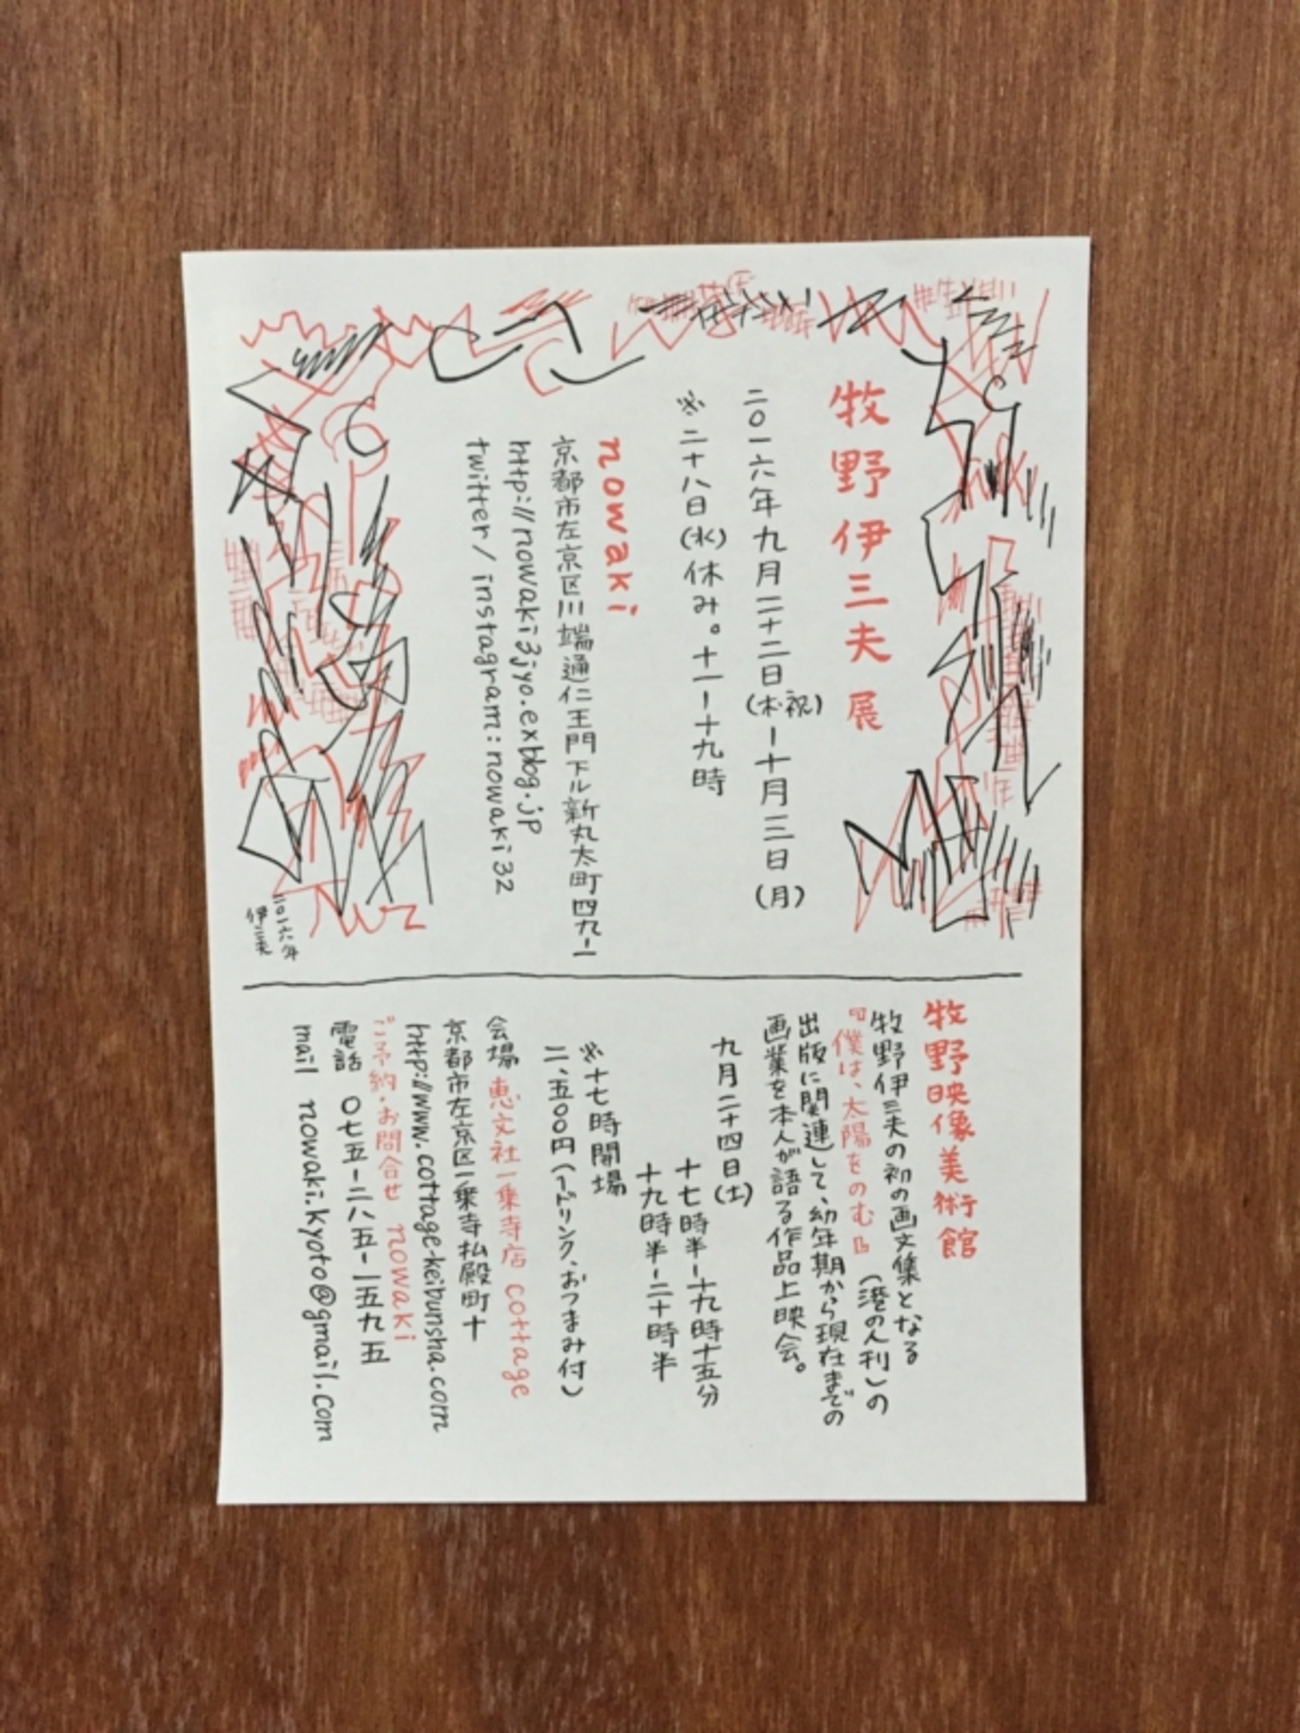 牧野伊三夫 展
二〇一六年九月二十二日(木・祝)ー十月三日(月)
※二十八日(水)休み。十一ー十九時
nowaki
京都市左京区川端通仁王門下ル新丸太町四九ー一
http://nowaki3jyo.exblog.jp
twitter/instagram:nowaki32
二〇一六年
伊三夫
牧野映像美術館
牧野伊三夫の初の画文集となる
『僕は、太陽をのむ』(港の人刊)の
出版に関連して、幼年期から現在までの
画業を本人が語る作品上映会。
九月二十四日(土)
十七時半ー十九時十五分
十九時半ー二十時半
※十七時開場
二、五〇〇円(1ドリンク、おつまみ付)
会場 恵文社一乗寺店 cottage
京都市左京区一乗寺払殿町十
http://www.cottage-keibunsha.com
ご予約・お問合せ nowaki
電話 〇七五ー二八五ー一五九五
mail nowaki.kyoto@gmail.com